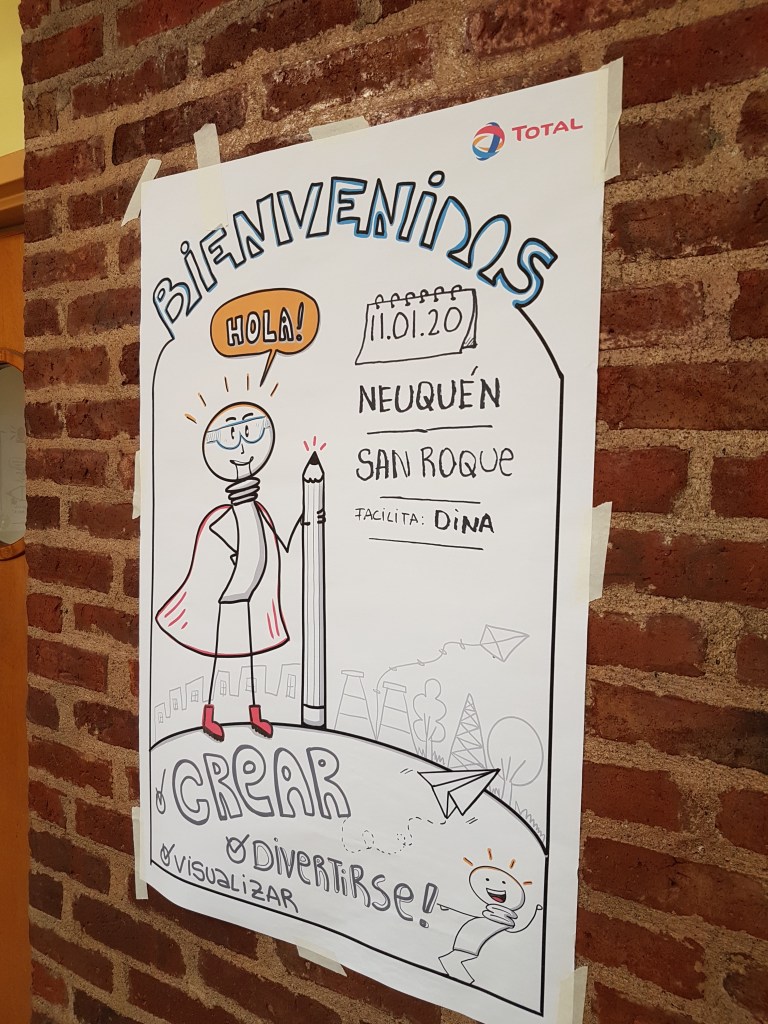 TOTAL
BIENVENIDOS
HOLA!
11.01.20
NEUQUÉN
SAN ROQUE
FACILITA: DINA
CREAR
DIVERTIRSE!
VISUALIZAR